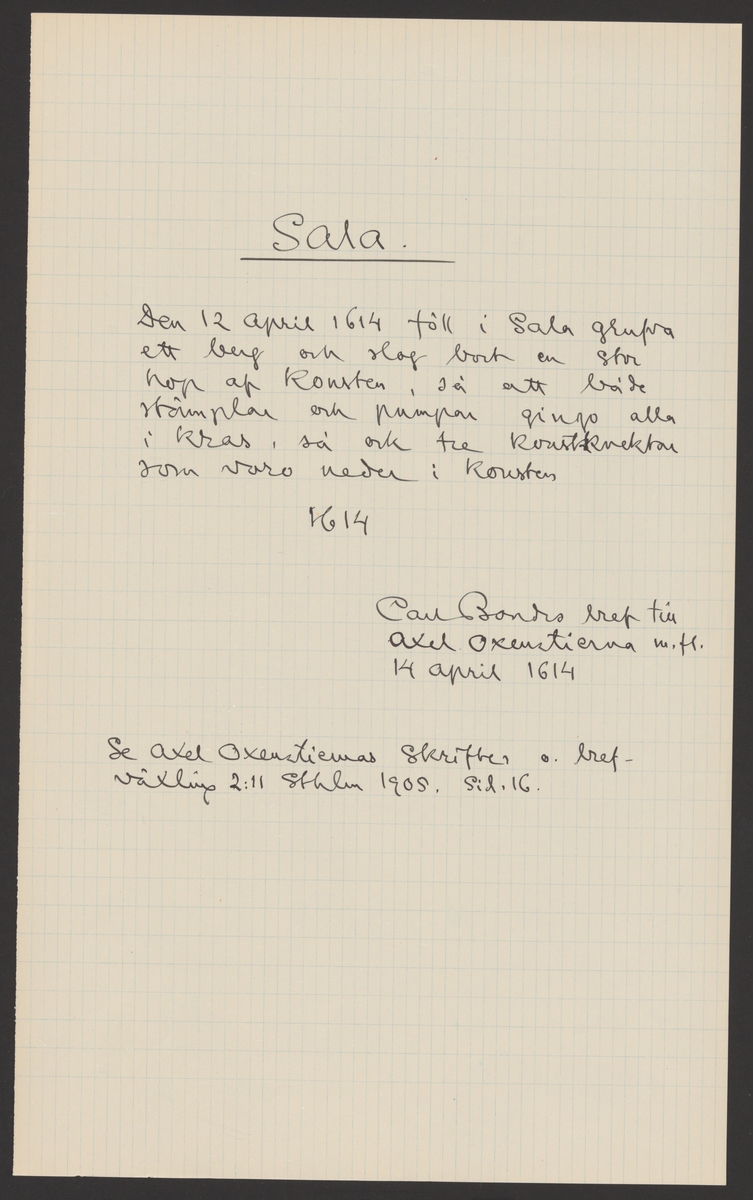 Sala.
Den 12 April 1614 föll i Sala grufva
ett berg och slog bort en stor
hop af Konsten, så att både
stämplar och pumpar gingo alla
i kras, så ock tre konstknektar
som voro neder i Konsten
1614
Carl Bondes bref till
Axel Oxenstierna m.fl.
14 April 1614
Se Axel Oxenstiernas Skrifter o. bref-
växling 2:11 Sthlm 1905. Sid. 16.